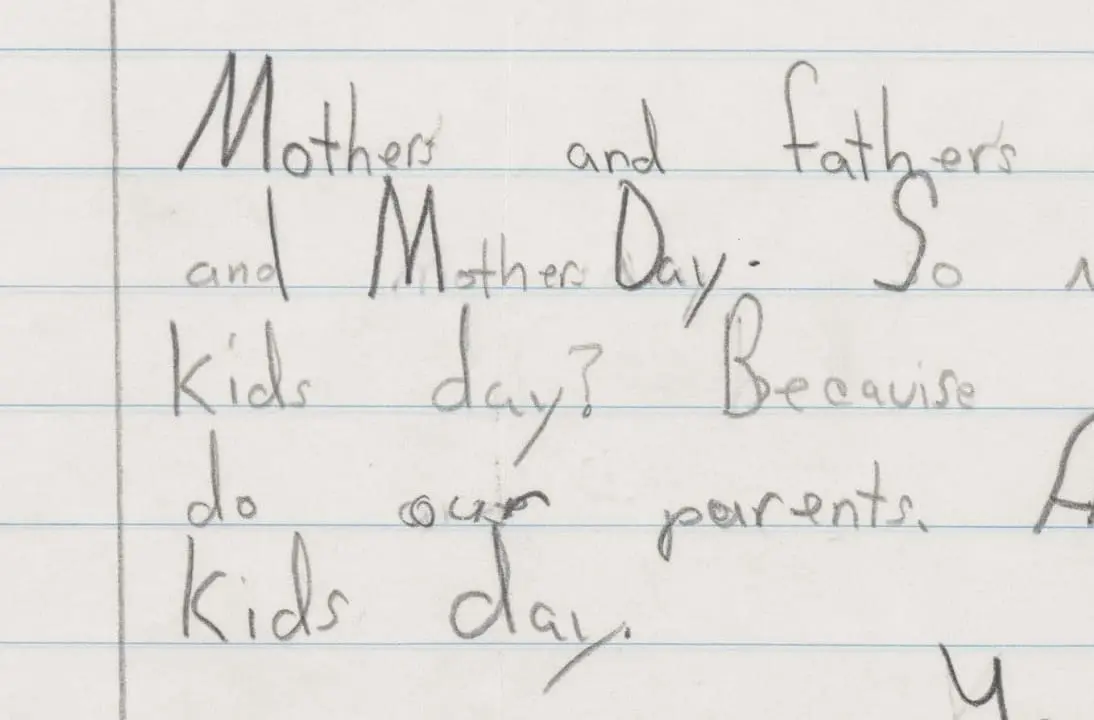 Mothers and fathers
and Mothers Day. So
Kids day? Becauise
do our parents.
Kids day.